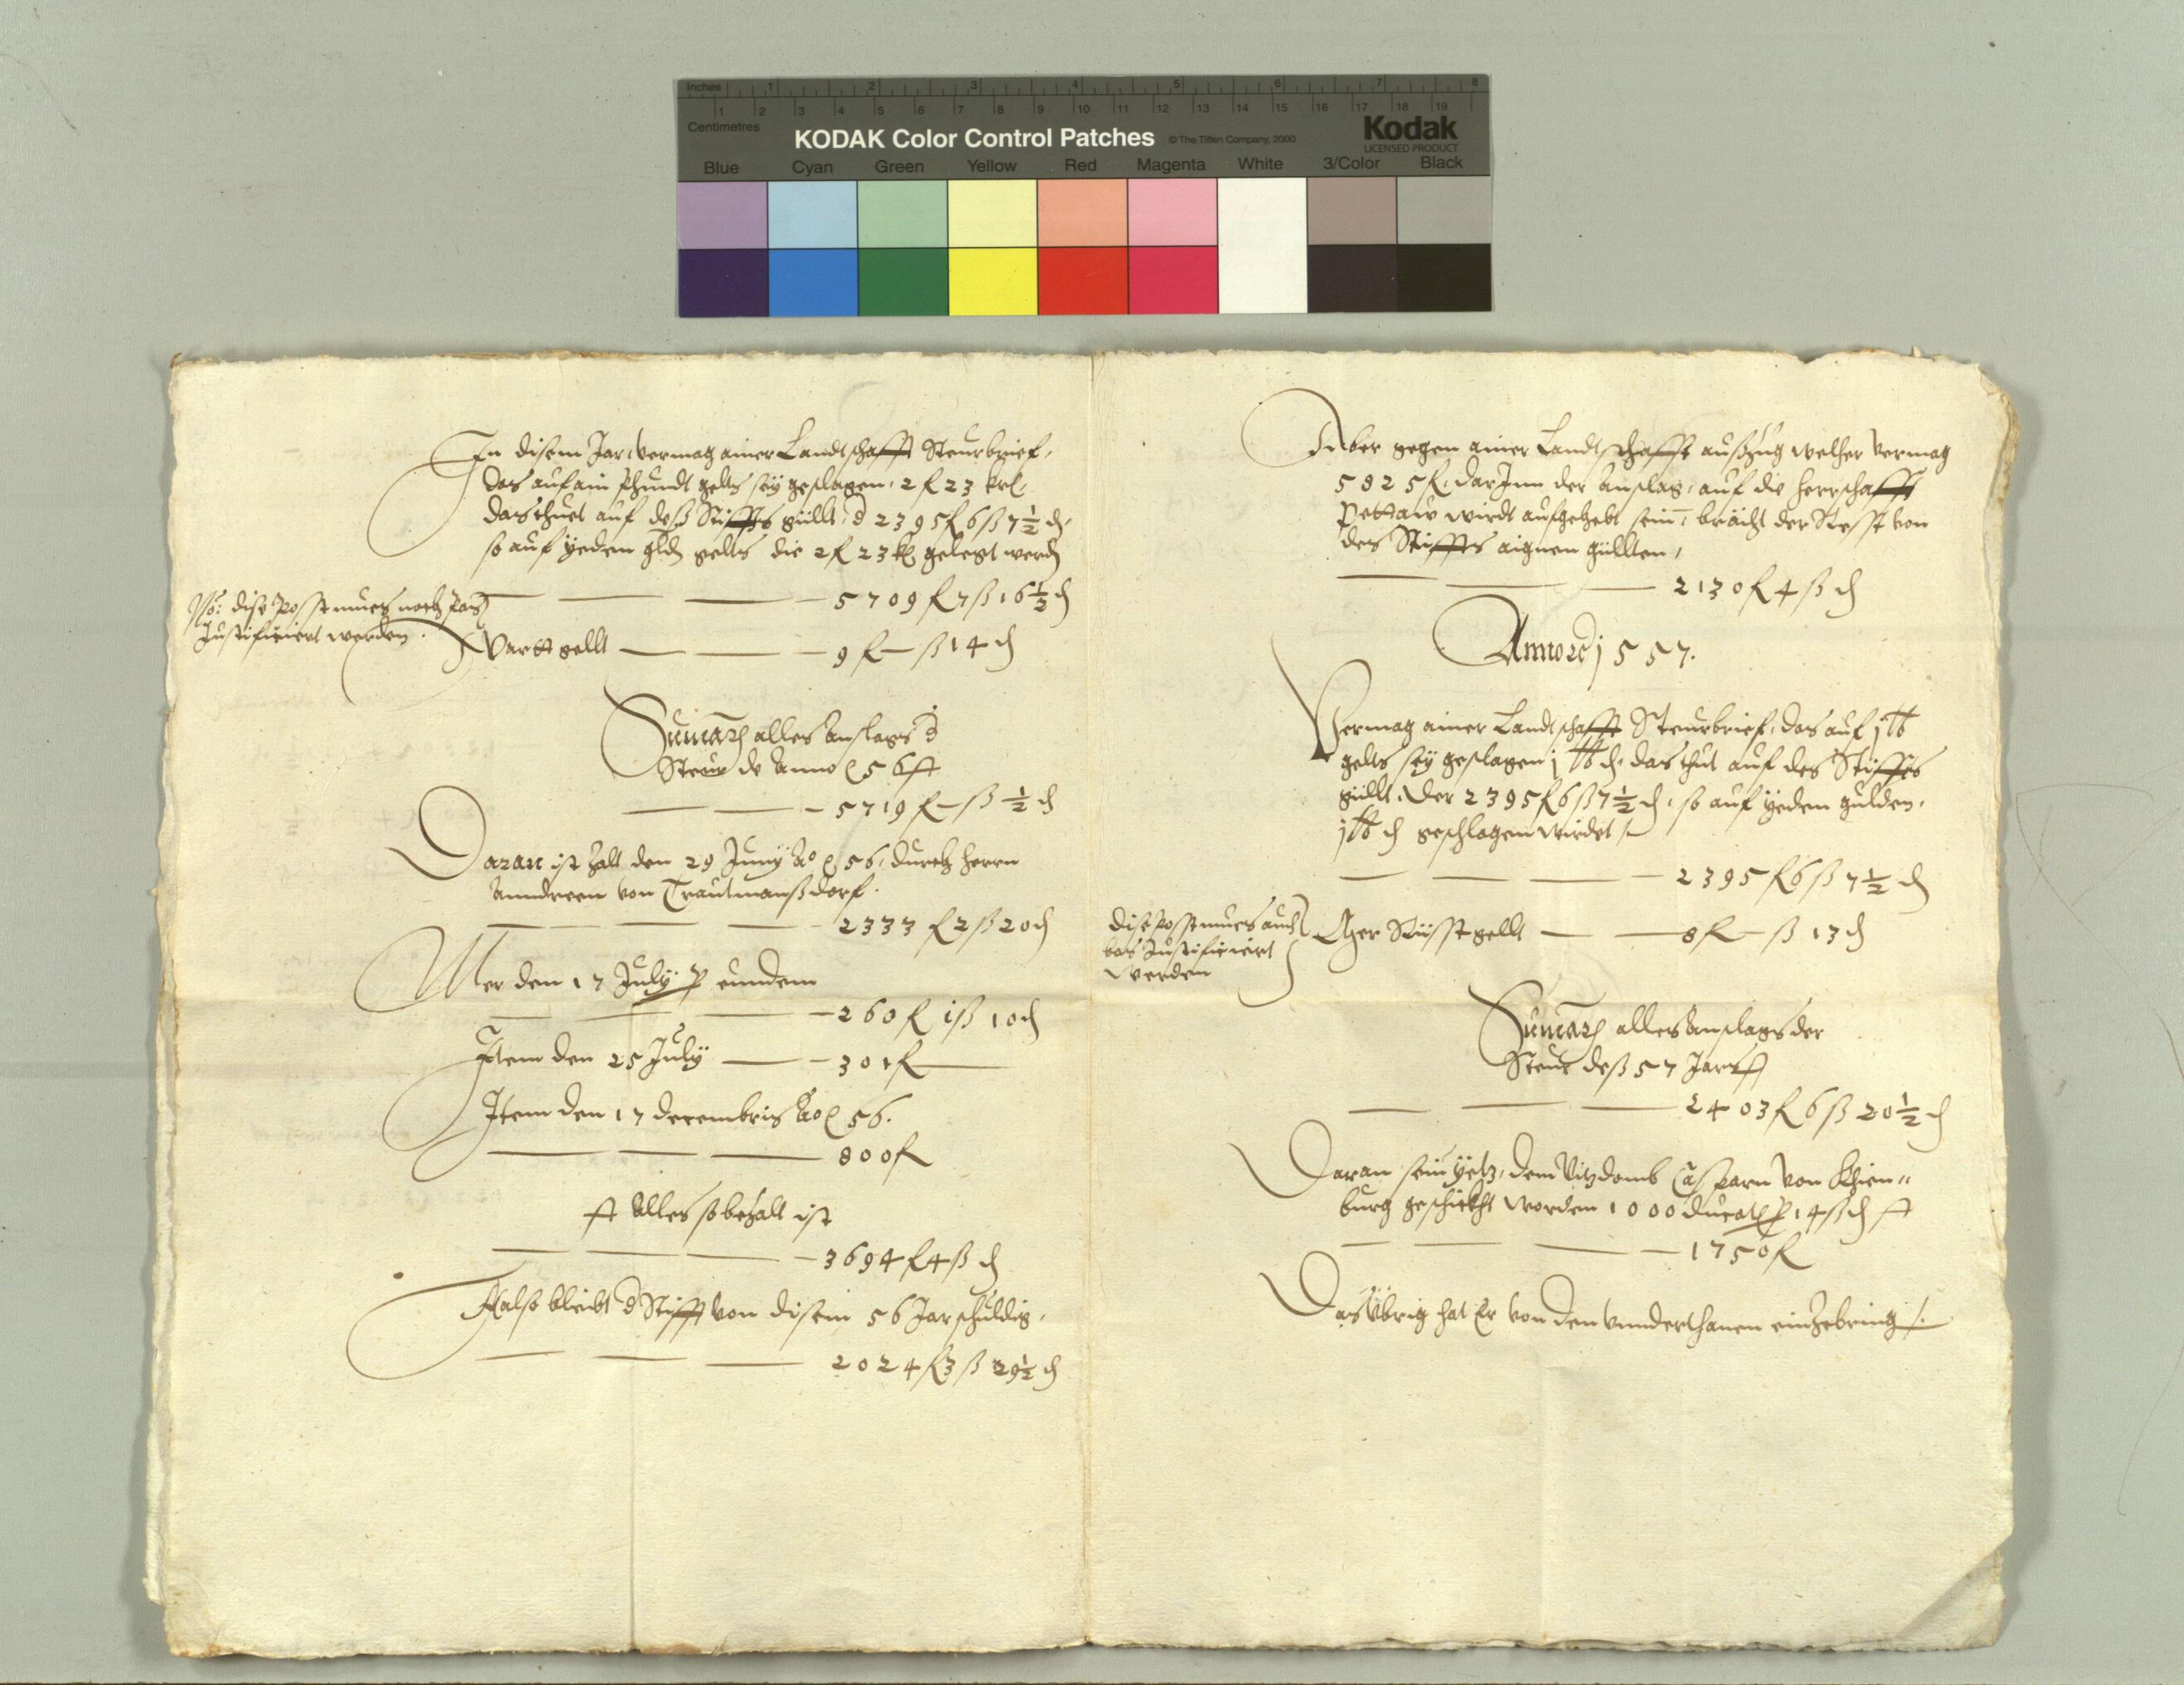 Inches 1 2 3 4 5 6 7 8
1 2 3 4 5 6 7 8 9 10 11 12 13 14 15 16 17 18 19
Centimetres
KODAK Color Control Patches © The Tiffen Company, 2000 Kodak
LICENSED PRODUCT
Blue Cyan Green Yellow Red Magenta White 3/Color Black
In disem Jar, vermag ainer Landtschafft Steurbrief,
das auf ain Phundt gelts sey geslagen, 2 f 23 krl,
das thuet auf deß Stiffts güllt, d 2395 f 6 ß 7 1/2 d,
so auf yeden gld gelts die 2 f 23 kr gelegt werd
5709 f 7 ß 16 1/2 d
Nô: dise Post mues noch bas
Justificiert werden.
Wartgellt 9 f – ß 14 d
Sumarum alles anslags d
Steur de Anno 56 st
5719 f – ß 1/2 d
Daran ist zalt den 29 Junÿ Ao 56, durch herrn
Anndreen von Trautmanßdorf.
2333 f 2 ß 20 d
Mer den 17 Julÿ eundem
260 f 1 ß 10 d
Item den 25 Julÿ 301 f
Item den 17 decembris Ao 56.
800 f
st Alles so bezalt ist
3694 f 4 ß d
Also bleibt d Stifft von disem 56 Jar schuldig,
2024 f 3 ß 29 1/2 d
Aber gegen ainer Landtschafft außzug welher vermag
5925 f, darInn der Anslag, auf die herrschafft
Pettaw wirdt aufgehebt sein, brächt der Rest von
des Stiffts aignen güllten,
2130 f 4 ß d
Anno 1557.
Vermag ainer Landtschafft Steurbrief, das auf j ℔
gelts sey geslagen j ℔ d, das thut auf des Stiffts
güllt, der 2395 f 6 ß 7 1/2 d, so auf yeden gulden,
j ℔ d geschlagen wirdet
2395 f 6 ß 7 1/2 d
dise Post mues auch
bas Justificiert
werden
Mer Rüsstgellt 8 f – ß 13 d
Sumarum alles anslags der
Steur deß 57 Jars st
2403 f 6 ß 20 1/2 d
Daran sein yetz, dem Vitzdomb Casparn von Khien„
burg geschickht worden 1000 ducat 14 ß d st
1750 f
Das Übrig hat Er von den vnnderthanen einzebring